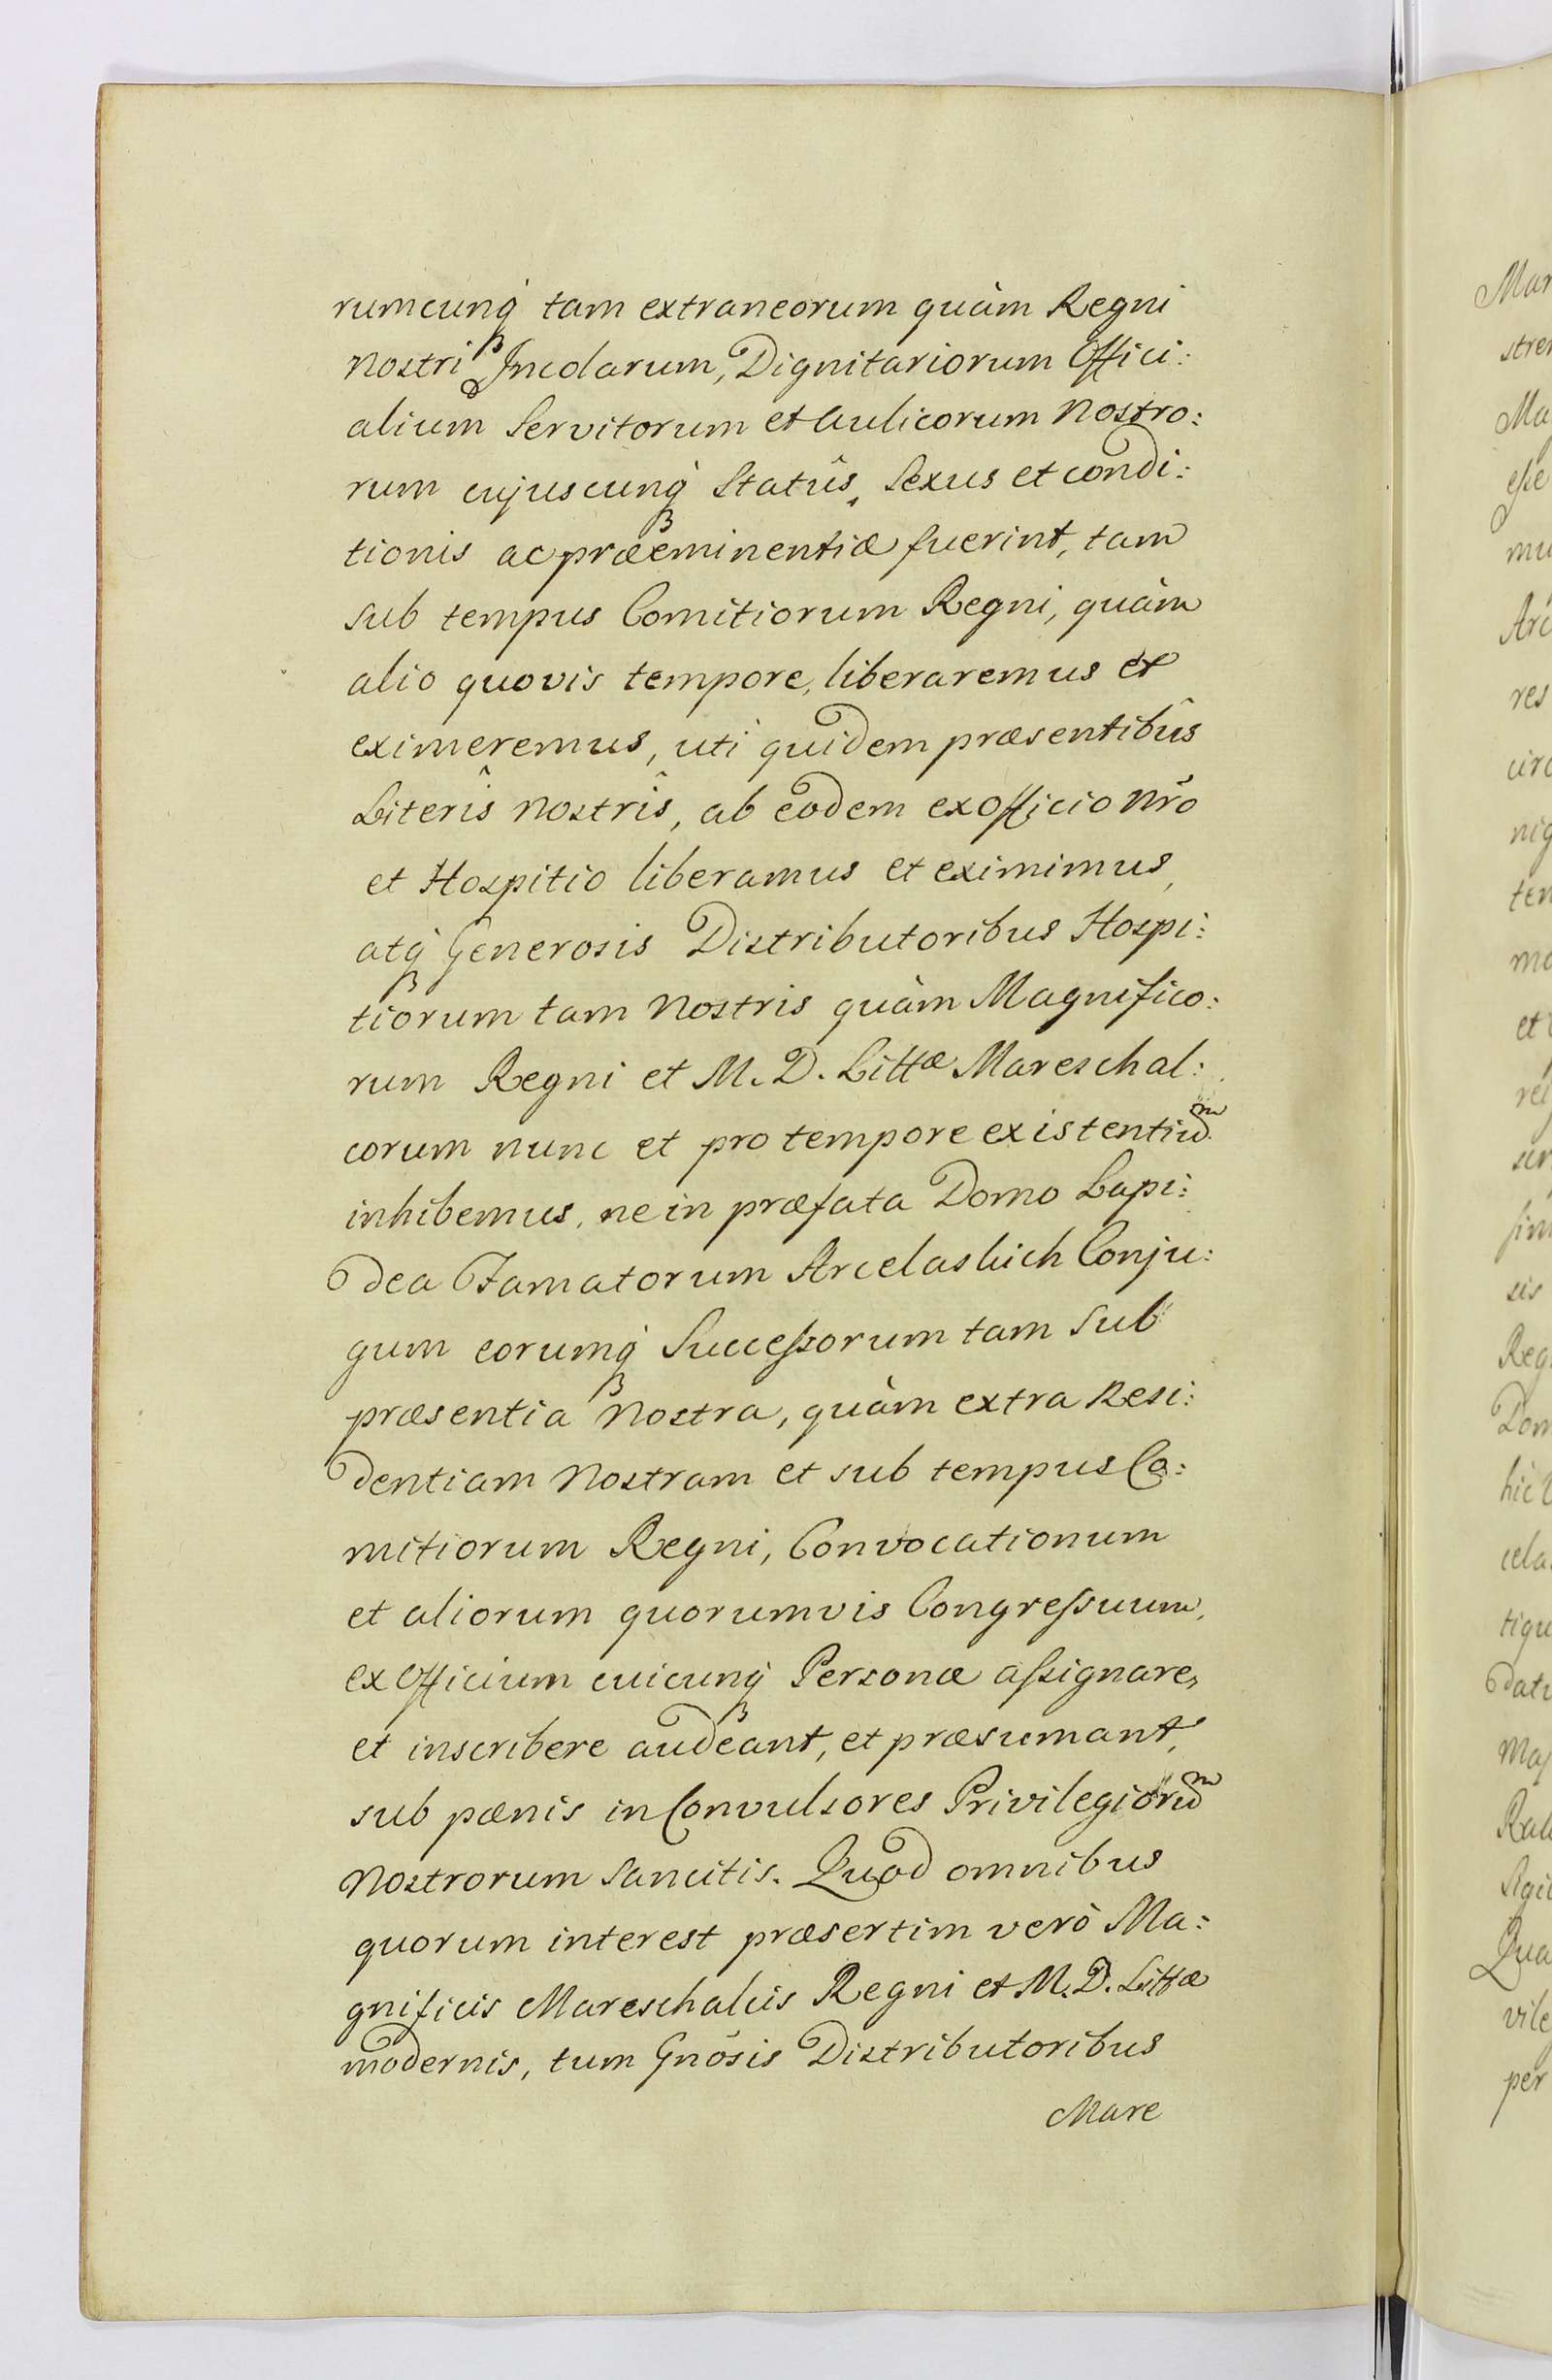 rumcunq́ tam extraneorum quàm Regni
nostri Incolarum, Dignitariorum Offici:
alium Servitorum et Aulicorum nostro:
rum cujuscunq́ Statûs, Sexus et condi:
tionis ac præeminentiæ fuerint, tam
sub tempus Comitiorum Regni, quàm
alio quovis tempore, liberaremus et
eximeremus, uti quidem præsentibûs
Literîs nostrîs, ab eodem ex Officio nr̃o
et Hospitio liberamus et eximimus,
atq́ Generosis Distributoribus Hospi:
tiorum tam nostris quàm Magnifico:
rum Regni et M. D. Littæ Mareschal:
corum nunc et pro tempore existentium
inhibemus, ne in præfata Domo Lapi:
dea Famatorum Arcelaskich Conju:
gum eorumq́ Successorum tam sub
præsentia nostra, quàm extra Resi:
dentiam nostram et sub tempus Co:
mitiorum Regni, Convocationum
et aliorum quorumvis Congressuum,
ex Officium cuicunq́ Personæ assignare,
et inscribere audeant, et præsumant,
sub pænis in Convulsores Privilegiorum
nostrorum sancitis. Quod omnibus
quorum interest præsertim verò Ma:
gnificis Mareschalcis Regni et M. D. Littæ
modernis, tum Gnõsis Distributoribus
Mare